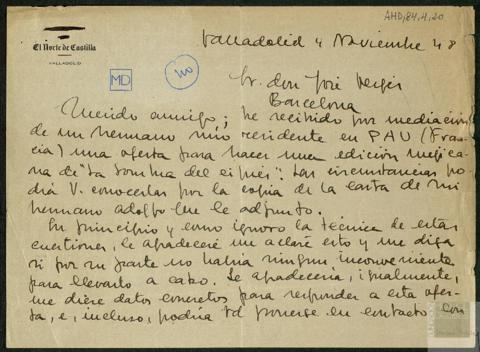 AHD, 84, 4, 20
El Norte de Castilla
VALLADOLID
Valladolid 4 Noviembre 48
MD
no
Sr. don José Vergés
Barcelona
Querido amigo; he recibido por mediación
de un hermano mío residente en PAU (Fran-
cia) una oferta para hacer una edición mejica-
na de "La sombra del ciprés". Las circunstancias po-
drá V. conocerlas por la copia de la carta de mi
hermano Adolfo que le adjunto.
En principio y como ignoro la técnica de estas
cuestiones, le agradeceré me aclare esto y me diga
si por su parte no había ningún inconveniente
para llevarlo a cabo. Le agradecería, igualmente,
me diese datos concretos para responder a esta ofer-
ta, e, incluso, podría Vd ponerse en contacto con